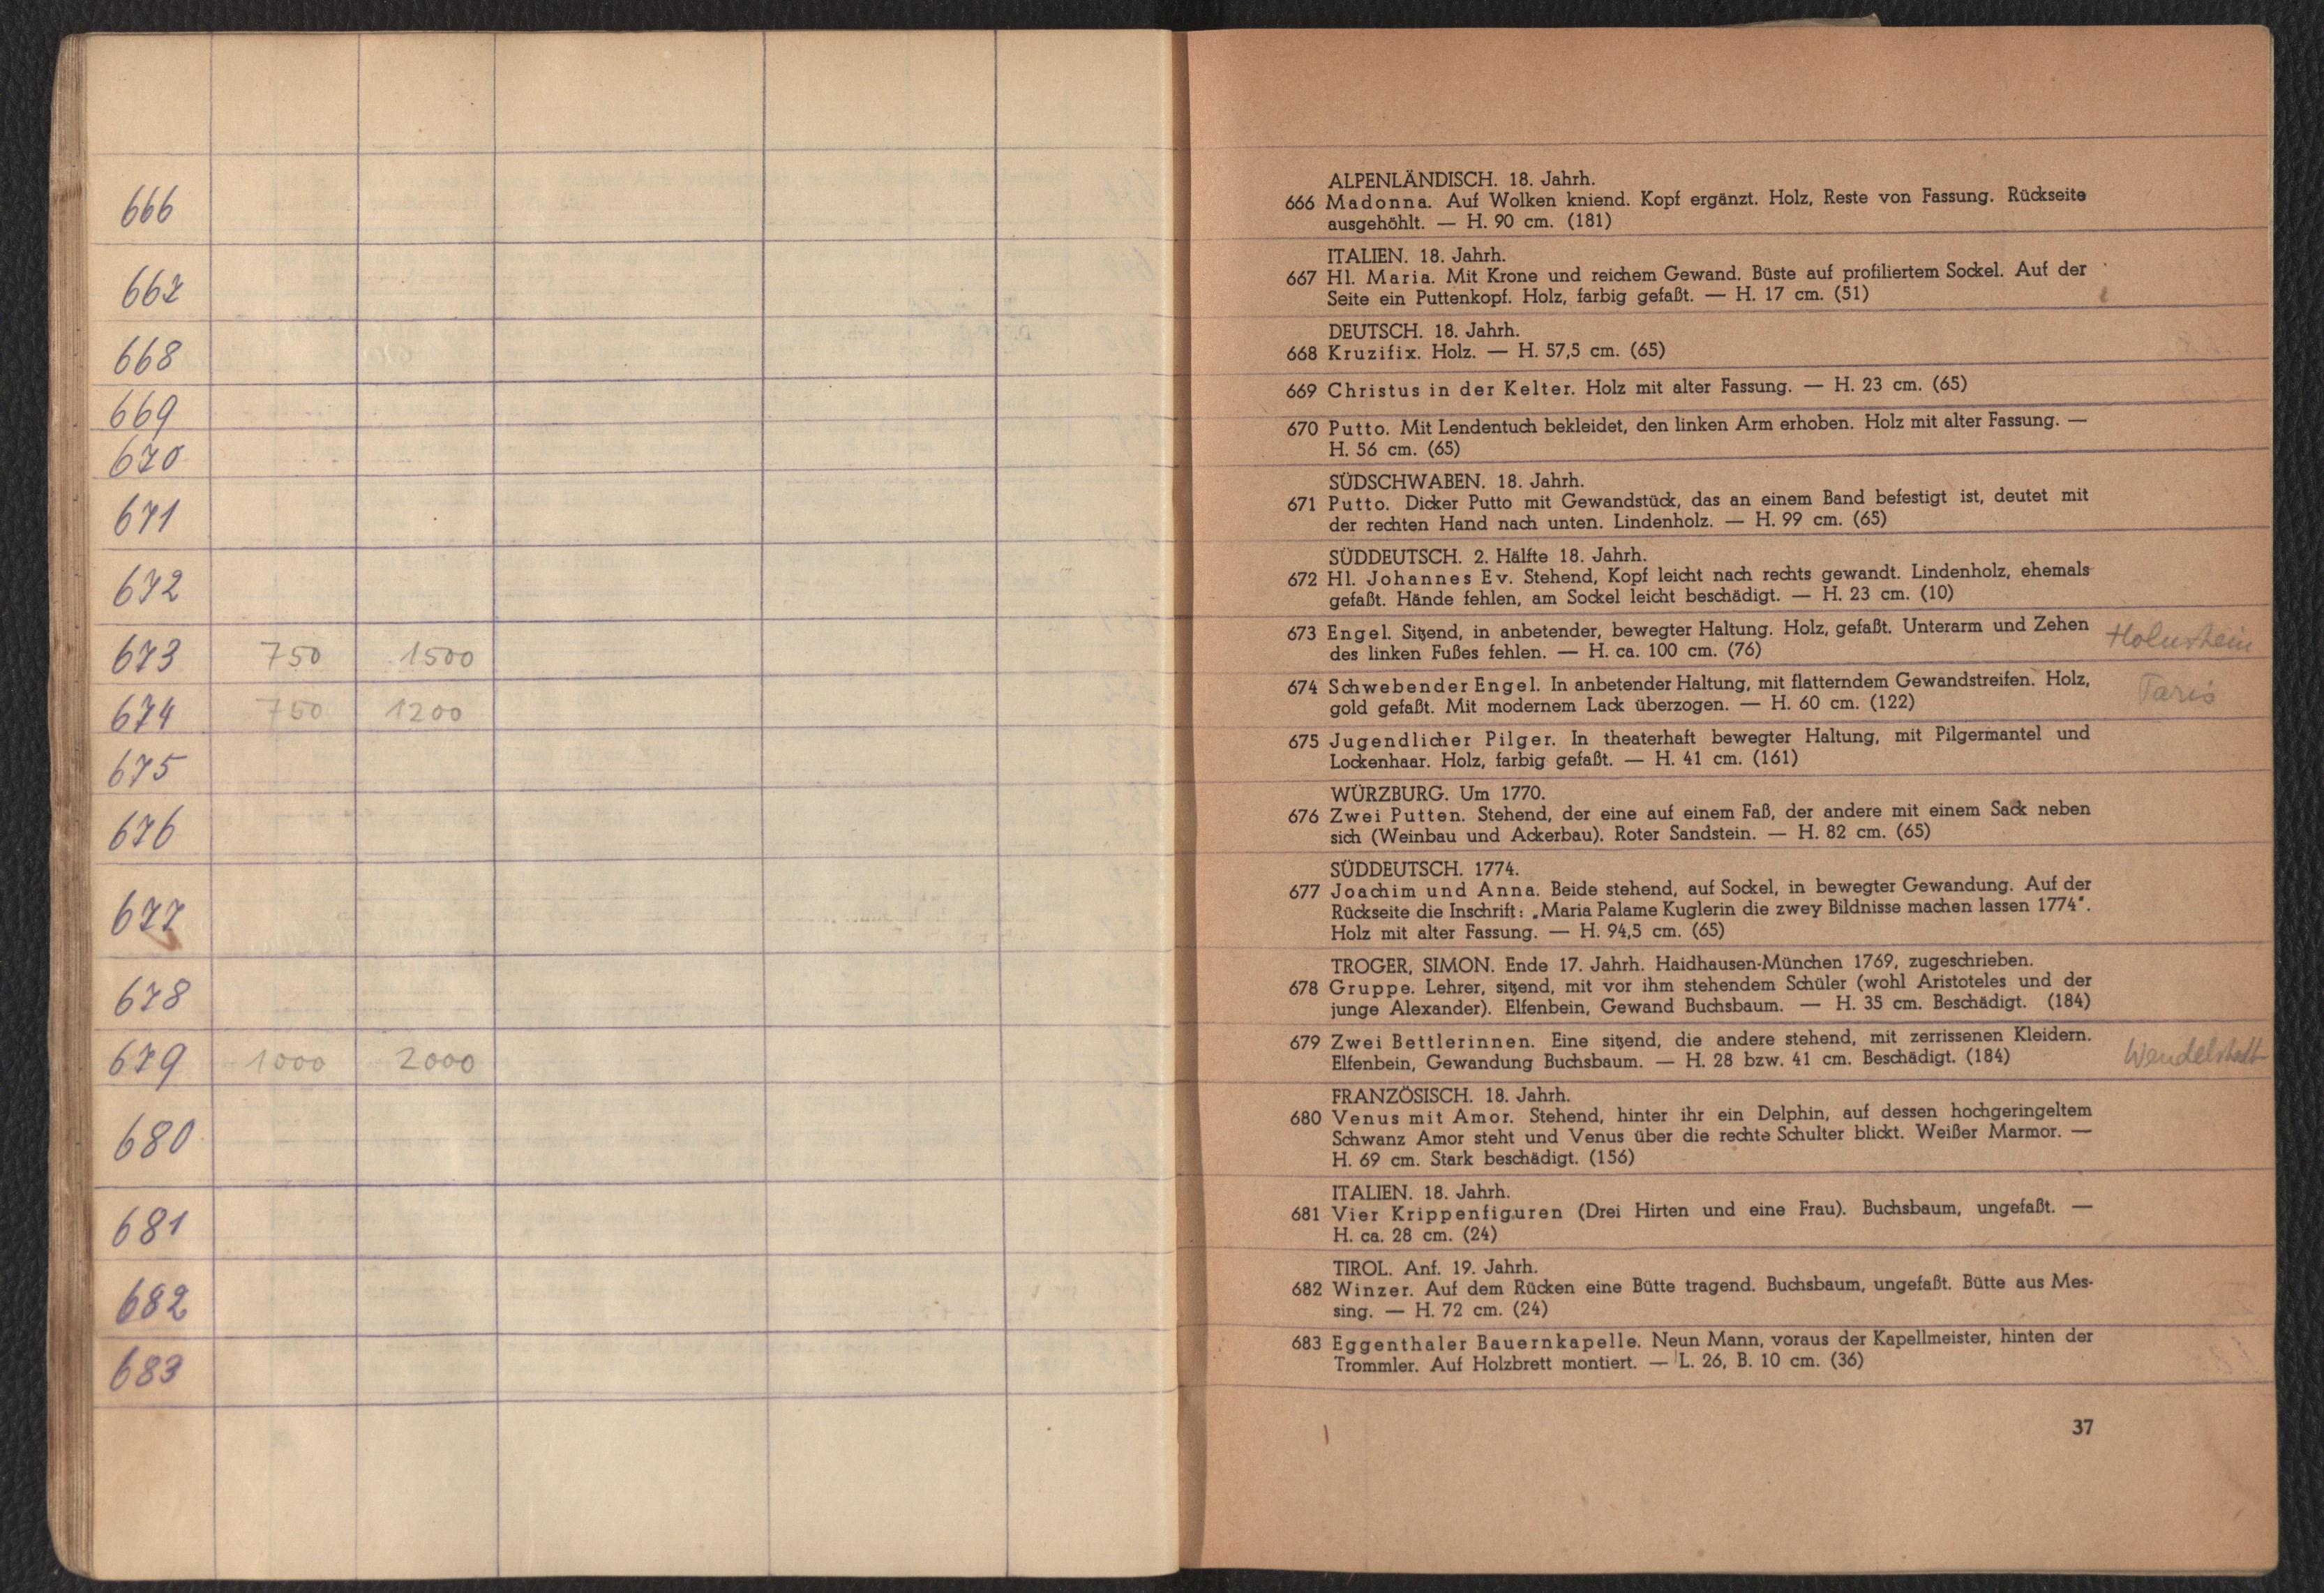 666
667
668
669
670
671
672
673 750 1500
674 750 1200
675
676
677
678
679 1000 2000
680
681
682
683
ALPENLÄNDISCH. 18. Jahrh.
666 Madonna. Auf Wolken kniend. Kopf ergänzt. Holz, Reste von Fassung. Rückseite
ausgehöhlt. — H. 90 cm. (181)
ITALIEN. 18. Jahrh.
667 Hl. Maria. Mit Krone und reichem Gewand. Büste auf profiliertem Sockel. Auf der
Seite ein Puttenkopf. Holz, farbig gefaßt. — H. 17 cm. (51)
DEUTSCH. 18. Jahrh.
668 Kruzifix. Holz. — H. 57,5 cm. (65)
669 Christus in der Kelter. Holz mit alter Fassung. — H. 23 cm. (65)
670 Putto. Mit Lendentuch bekleidet, den linken Arm erhoben. Holz mit alter Fassung. —
H. 56 cm. (65)
SÜDSCHWABEN. 18. Jahrh.
671 Putto. Dicker Putto mit Gewandstück, das an einem Band befestigt ist, deutet mit
der rechten Hand nach unten. Lindenholz. — H. 99 cm. (65)
SÜDDEUTSCH. 2. Hälfte 18. Jahrh.
672 Hl. Johannes Ev. Stehend, Kopf leicht nach rechts gewandt. Lindenholz, ehemals
gefaßt. Hände fehlen, am Sockel leicht beschädigt. — H. 23 cm. (10)
673 Engel. Sitzend, in anbetender, bewegter Haltung. Holz, gefaßt. Unterarm und Zehen
des linken Fußes fehlen. — H. ca. 100 cm. (76) Holnstein
674 Schwebender Engel. In anbetender Haltung, mit flatterndem Gewandstreifen. Holz,
gold gefaßt. Mit modernem Lack überzogen. — H. 60 cm. (122)
675 Jugendlicher Pilger. In theaterhaft bewegter Haltung, mit Pilgermantel und
Lockenhaar. Holz, farbig gefaßt. — H. 41 cm. (161)
WÜRZBURG. Um 1770.
676 Zwei Putten. Stehend, der eine auf einem Faß, der andere mit einem Sack neben
sich (Weinbau und Ackerbau). Roter Sandstein. — H. 82 cm. (65)
SÜDDEUTSCH. 1774.
677 Joachim und Anna. Beide stehend, auf Sockel, in bewegter Gewandung. Auf der
Rückseite die Inschrift: „Maria Palame Kuglerin die zwey Bildnisse machen lassen 1774“.
Holz mit alter Fassung. — H. 94,5 cm. (65)
TROGER, SIMON. Ende 17. Jahrh. Haidhausen-München 1769, zugeschrieben.
678 Gruppe. Lehrer, sitzend, mit vor ihm stehendem Schüler (wohl Aristoteles und der
junge Alexander). Elfenbein, Gewand Buchsbaum. — H. 35 cm. Beschädigt. (184)
679 Zwei Bettlerinnen. Eine sitzend, die andere stehend, mit zerrissenen Kleidern.
Elfenbein, Gewandung Buchsbaum. — H. 28 bzw. 41 cm. Beschädigt. (184) Wendelstadt
FRANZÖSISCH. 18. Jahrh.
680 Venus mit Amor. Stehend, hinter ihr ein Delphin, auf dessen hochgeringeltem
Schwanz Amor steht und Venus über die rechte Schulter blickt. Weißer Marmor. —
H. 69 cm. Stark beschädigt. (156)
ITALIEN. 18. Jahrh.
681 Vier Krippenfiguren (Drei Hirten und eine Frau). Buchsbaum, ungefaßt. —
H. ca. 28 cm. (24)
TIROL. Anf. 19. Jahrh.
682 Winzer. Auf dem Rücken eine Bütte tragend. Buchsbaum, ungefaßt. Bütte aus Mes-
sing. — H. 72 cm. (24)
683 Eggenthaler Bauernkapelle. Neun Mann, voraus der Kapellmeister, hinten der
Trommler. Auf Holzbrett montiert. — L. 26, B. 10 cm. (36)
37